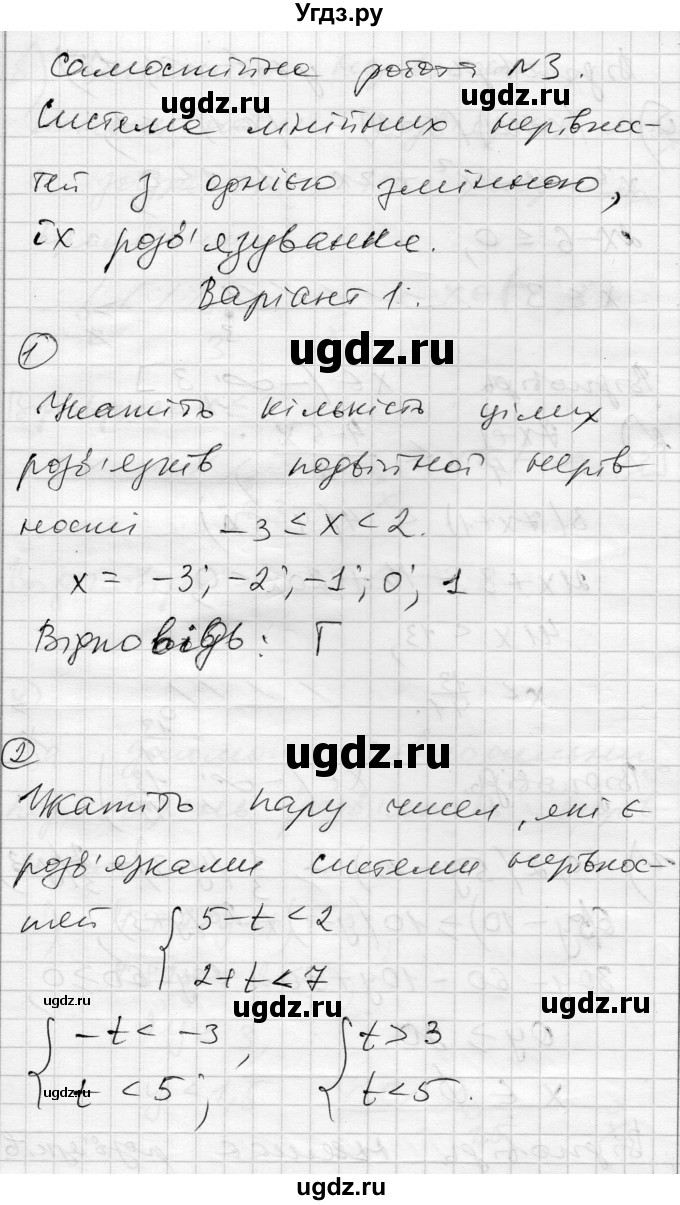 Угдз.ру
Самостійна робота №3.
Система лінійних нерівнос-
тей з однією змінною,
їх розв'язування.
Варіант 1.
ugdz.ru
ugdz.ru
ugdz.ru
1
Укажіть кількість цілих
розв'язків подвійної нерів
ності -3 ≤ x < 2.
x = -3; -2; -1; 0; 1
Відповідь: Г
ugdz.ru
2
Укажіть пару чисел, які є
розв'язками системи нерівнос-
тей { 5-t<2
2+t<7
ugdz.ru
ugdz.ru
ugdz.ru
{ -t < -3, { t>3
t < 5; t<5.
ugdz.ru
ugdz.ru